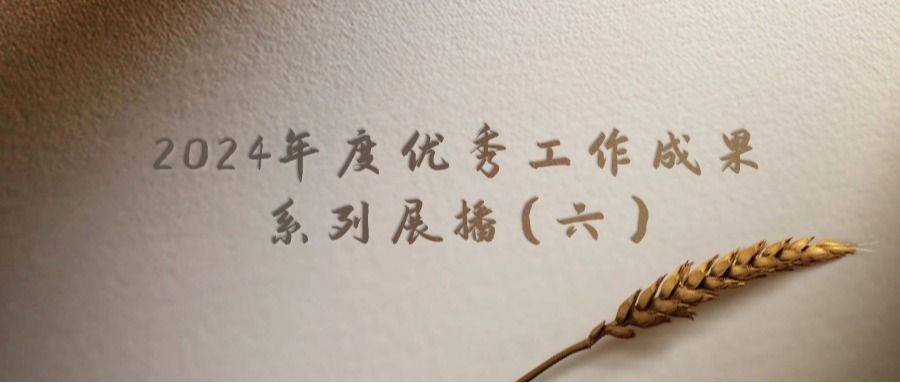 2024年度优秀工作成果
系列展播（六）